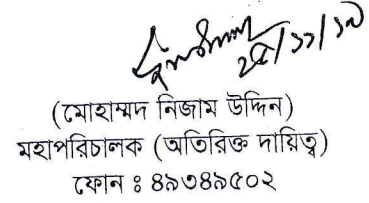 ২৫/১১/১৯
(মোহাম্মদ নিজাম উদ্দিন)
মহাপরিচালক (অতিরিক্ত দায়িত্ব)
ফোন ঃ ৪৯৩৪৯৫০২